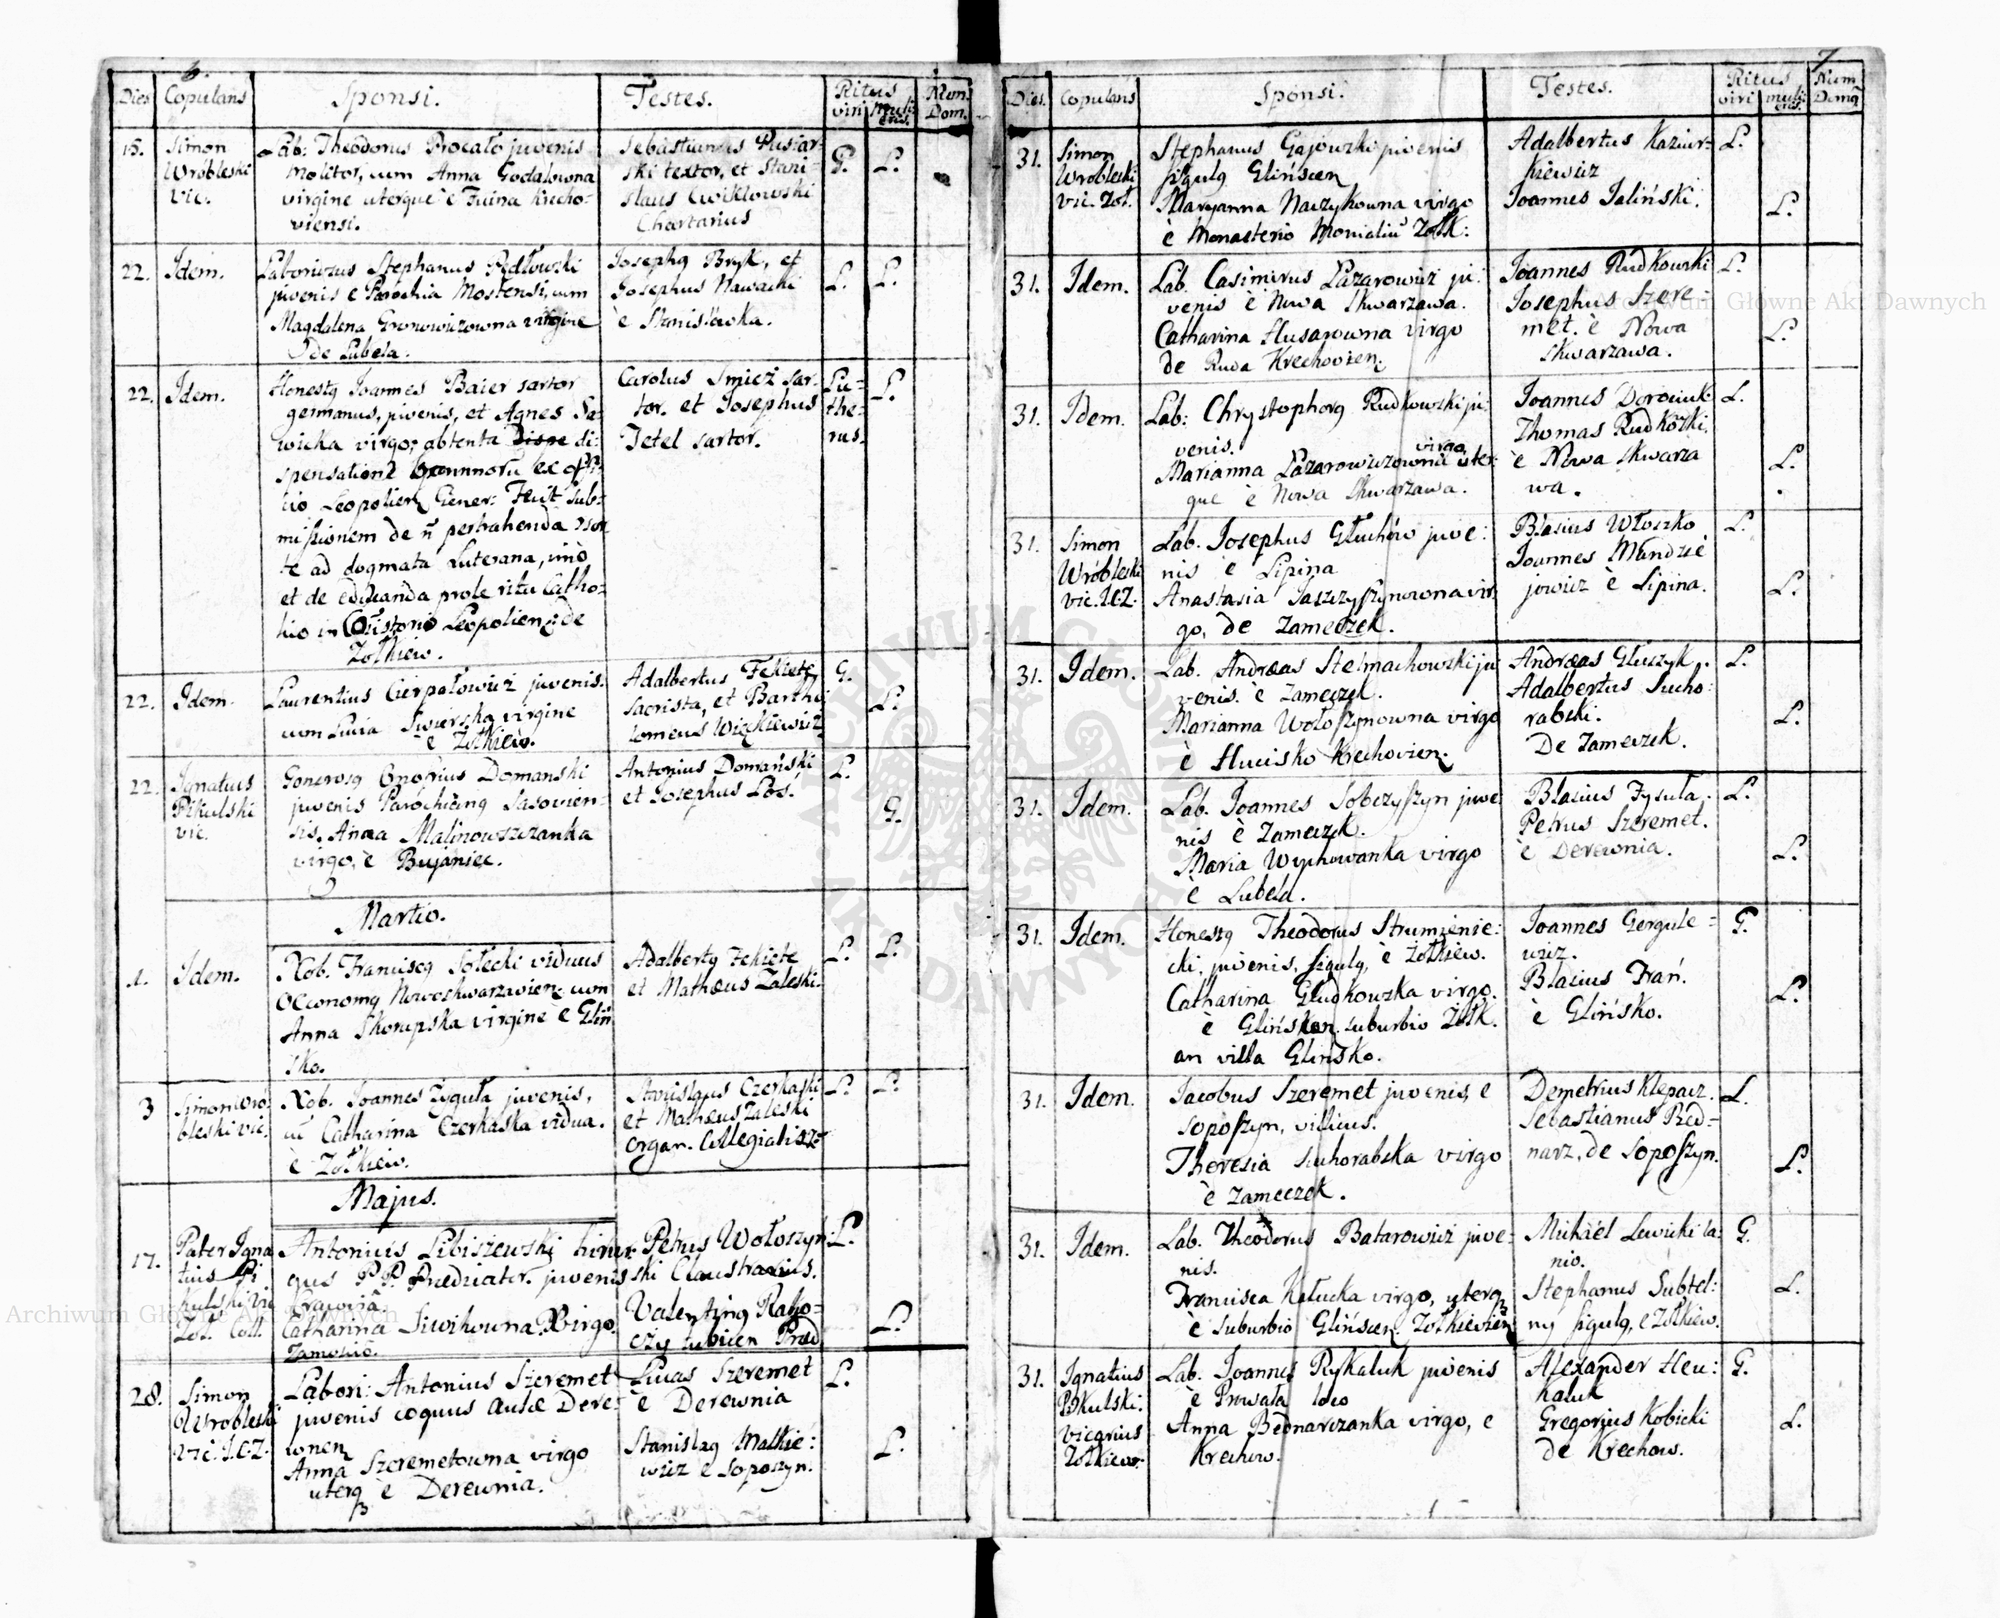 6.
Dies
Copulans
Sponsi.
Testes.
Ritus
viri
muli
eris.
Num.
Dom.
15.
Simon
Wróbleski
vic.
Lab: Theodorus Procało juvenis
molitor, cum Anna Godalowna
virgine uterque è Fuina Krecho-
viensi.
Sebastianus Pusiar-
ski textor, et Stani-
slaus Cwiklowski
Chartarius
G.
L.
22.
Idem.
Laboriosus Stephanus Pędłowski
juvenis e Parochia Mostensi, cum
Magdalena Gronowiczowna virgine
de Lubela.
Josephq Bryk, et
Josephus Nawacki
è Stanisłówka.
L.
L.
22.
Idem.
Honestq Joannes Baier sartor
germanus, juvenis, et Agnes Sa-
wicka virgo; obtenta di-
spensatione
Leopolien Gener: Fecit sub-
missionem de ñ pertrahenda
te ad dogmata Luterana, imò
et de educanda prole ritu Catho-
lico in Leopolien: de
Zołkiew.
Carolus Smicz sar-
tor. et Josephus
Tetel sartor.
Lu-
the-
rus.
L.
22.
Idem.
Laurentius Cierpałowicz juvenis.
cum Lucia Siwierska virgine
è Zołkiew.
Adalbertus Fekiete
sacrista, et Bartho
lomeus Więckiewicz
G.
L.
22.
Ignatius
Pikulski
vic.
Generosq Onofrius Domanski
juvenis Parochianq Sasovien-
sis, Anna Malinowszczanka
virgo, è Bujaniec.
Antonius Domański
et Josephus Łoś.
L.
G.
Martio.
1.
Idem.
Nob. Franciscq Solecki viduus
Oeconomq Nowoskwarzavien: cum
Anna Skorupska virgine è Gliń
sko.
Adalbertq Fekiete
et Mathæus Zaleski.
L.
L.
3
Simon Wró-
bleski vic.
Nob. Joannes Zyguła juvenis,
cũ Catharina Czerkaska vidua.
è Zołkiew.
Stanislaus Czerkaski
et Mathæus Zaleski
organ. Collegialis
L.
L.
Majus.
17.
Pater Igna
tius Pi.
kulski Vic
Zol. Coll.
Antonius Libiszewski
qus P.P. Prediator. juvenis
Catharina Siwikowna Virgo
Petrus Wołoszyn
ski Claustralis.
Valentinq Rako-
czy tubicen Præd
L.
L.
28.
Simon
Wróbleski
vic. I.C.Z.
Labori: Antonius Szeremet
juvenis coquus aulæ Dere-
wnen
Anna Szeremetowna virgo
uterq è Derewnia.
Lucas Szeremet
è Derewnia
Stanislaq Matkie:
wicz e Soposzyn.
L.
L.
7
Dies.
Copulans
Sponsi.
Testes.
Ritus
viri
muli
eris.
Num
Domq
31.
Simon
Wróbleski
vic. Zoł.
Stephanus Gajowski juvenis
figulq Glińscen
Maryanna Naczykowna virgo
è Monasterio Monialiũ Zołk:
Adalbertus Kazimr-
kiewicz
Joannes Jaliński.
L.
L.
31.
Idem.
Lab. Casimirus Łazarowicz ju:
venis è Nowa Skwarzawa.
Catharina Husarowna virgo
de Ruda Krechovien.
Joannes Rudkowski
Josephus Szere-
met. è Nowa
Skwarzawa.
L.
L.
31.
Idem.
Lab: Chrystophorq Rudkowski ju:
venis.
virgo
Marianna Łazarowiczowna uter:
que è Nowa Skwarzawa.
Joannes Dorociuk
Thomas Rudkoski.
è Nowa Skwarza
wa.
L.
L.
31.
Simon
Wróbleski
vic. I.C.Z.
Lab. Josephus Głuchów juve:
nis è Lipina
Anastasia Jaszczyszynowna vir
go, de Zameczek.
Blasius Włoszko
Joannes Mandzie
jowicz è Lipina.
L.
L.
31.
Idem.
Lab. Andræas Stelmachowski ju
venis. è Zameczek.
Marianna Wołoszynowna virgo
è Hucisko Krechovien.
Andræas Głuszyk.
Adalbertus Sucho:
rabski.
De Zameczek.
L.
L.
31.
Idem.
Lab. Joannes Sobczyszyn juve
nis è Zameczek.
Maria Wychowanka virgo
è Lubela.
Blasius Zyguła.
Petrus Szeremet.
è Derewnia.
L.
L.
31.
Idem.
Honestq Theodorus Strumienie:
cki, juvenis, figulq, è Zołkiew.
Catharina Gludkowska virgo.
è Glinskien. suburbio Zołk.
an villa Glińsko.
Joannes Gergule-
wicz.
Blasius Trań.
è Glińsko.
G.
L.
31.
Idem.
Jacobus Szeremet juvenis, e
Soposzyn, vilicus.
Theresia Suchorabska virgo
è Zameczek.
Demetrius Klepacz.
Sebastianus Bed-
narz, de Soposzyn.
L.
L.
31.
Idem.
Lab. Theodorus Batarowicz juve-
nis.
Francisca Kałucka virgo, uterq
è suburbio Glińscen Zołkievien
Michaël Lewicki la-
nio.
Stephanus Subtel:
ny figulq, e Zołkiew.
G.
L.
31.
Ignatius
Pikulski.
vicarius
Zołkiew.
Lab. Joannes Rykaluk juvenis
è Prowała loco
Anna Bednarczanka virgo, e
Krechow.
Alexander Heu:
kaluk
Gregorius Kobicki
de Krechow.
G.
L.
Archiwum Główne Akt Dawnych
Archiwum Główne Akt Dawnych
ARCHIWUM GŁÓWNE AKT DAWNYCH